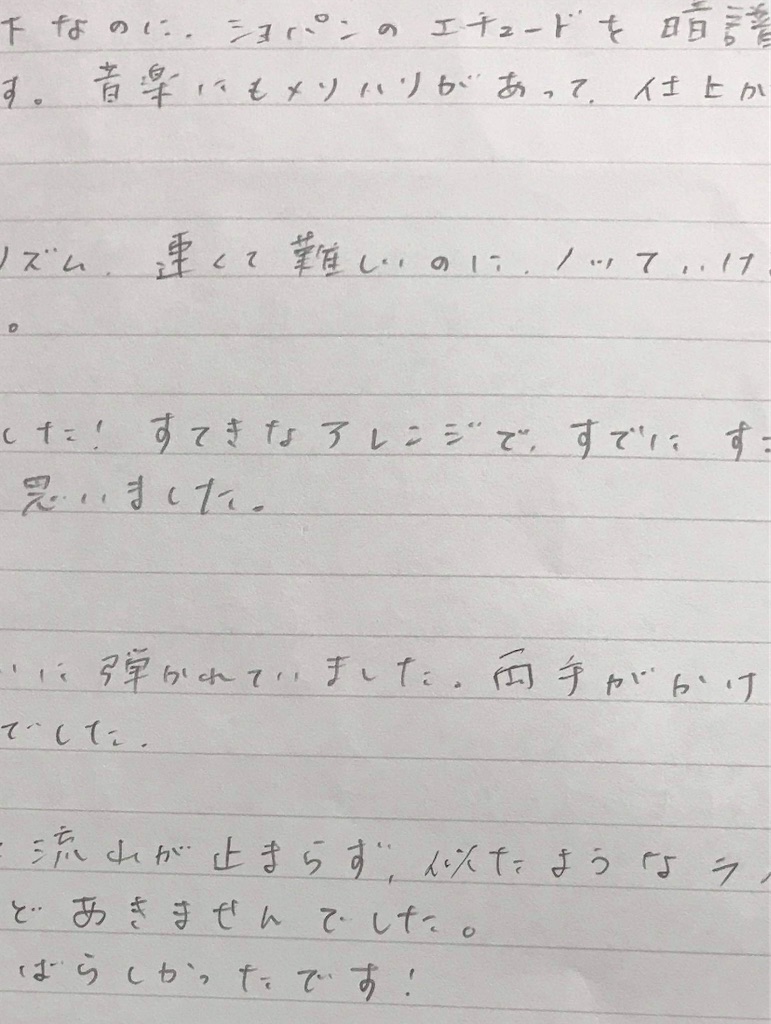 下なのに、ショパンのエチュードを暗譜
す。音楽にもメリハリがあって、仕上が
リズム、速くて難しいのに、ノッていけ
。
した！すてきなアレンジで、すでにす
思いました。
いに弾かれていました。両手がかけ
でした。
流れが止まらず、似たようなラ
どあきませんでした。
ばらしかったです！